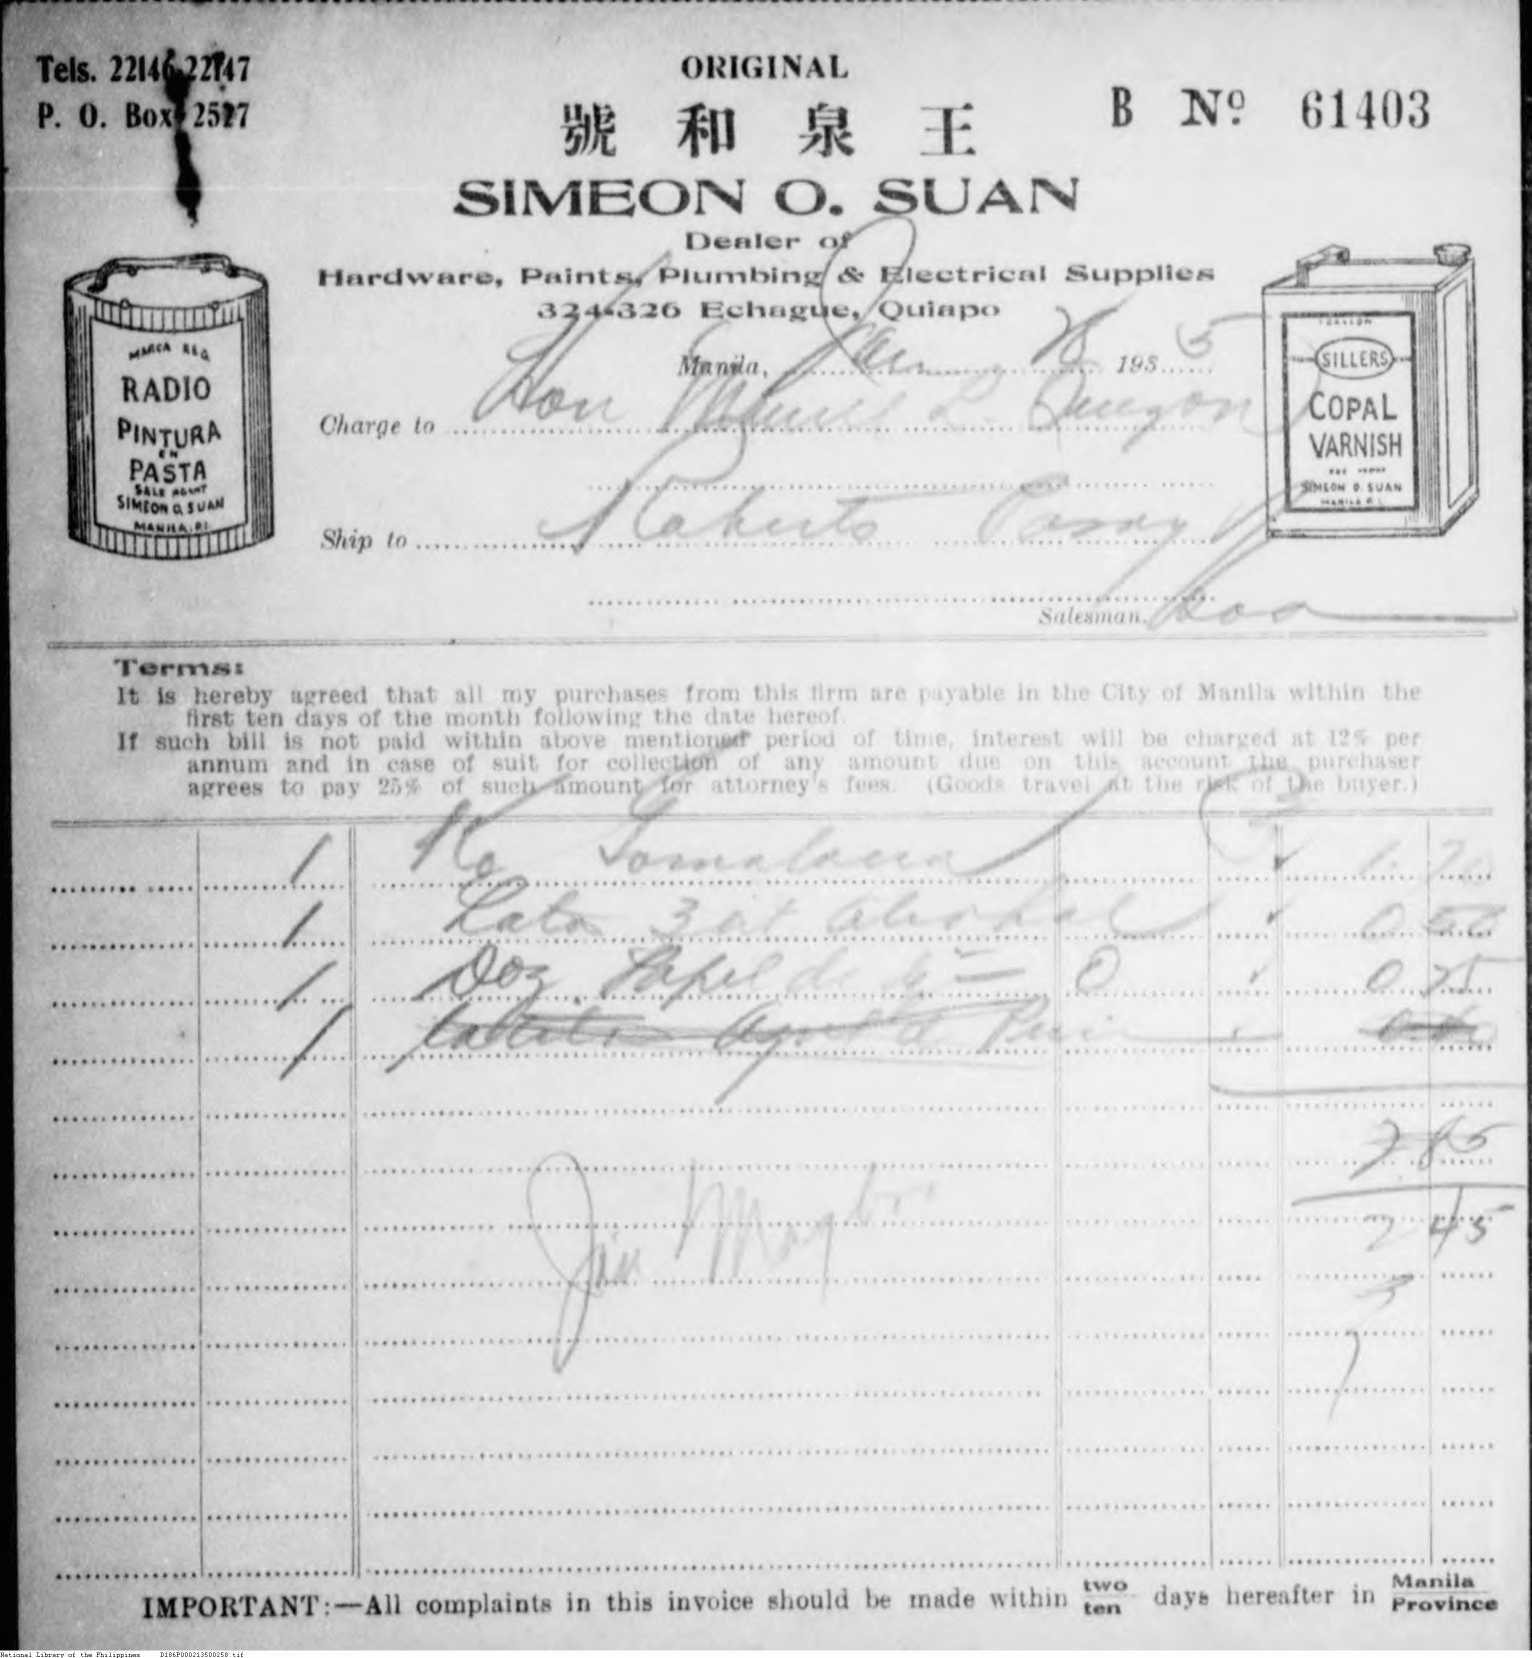 Tels. 22146-22147
P. O. Box 2517
ORIGINAL
B Nº 61403
號和泉王
SIMEON O. SUAN
Dealer of
Hardware, Paints, Plumbing & Electrical Supplies
324-326 Echague, Quiapo
MARCA REG.
RADIO
PINTURA
EN
PASTA
SALE AGENT
SIMEON O. SUAN
MANILA. P.I.
SILLERS
COPAL
VARNISH
SIMEON O. SUAN
MANILA P. I.
Manila, 1935
Charge to Hon Manuel L. Quezon
Ship to Roberts Pasay
Salesman
Terms:
It is hereby agreed that all my purchases from this firm are payable in the City of Manila within the
first ten days of the month following the date hereof.
If such bill is not paid within above mentioned period of time, interest will be charged at 12% per
annum and in case of suit for collection of any amount due on this account the purchaser
agrees to pay 25% of such amount for attorney's fees. (Goods travel at the risk of the buyer.)
1 Ko Gomalaca 1.20
1 Lata 3 Alcohol 0.50
1 Doz. Papel de 0 0.75
1
2 85
2 45
IMPORTANT:—All complaints in this invoice should be made within two ten days hereafter in Manila Province
National Library of the Philippines D186P000213500258.tif